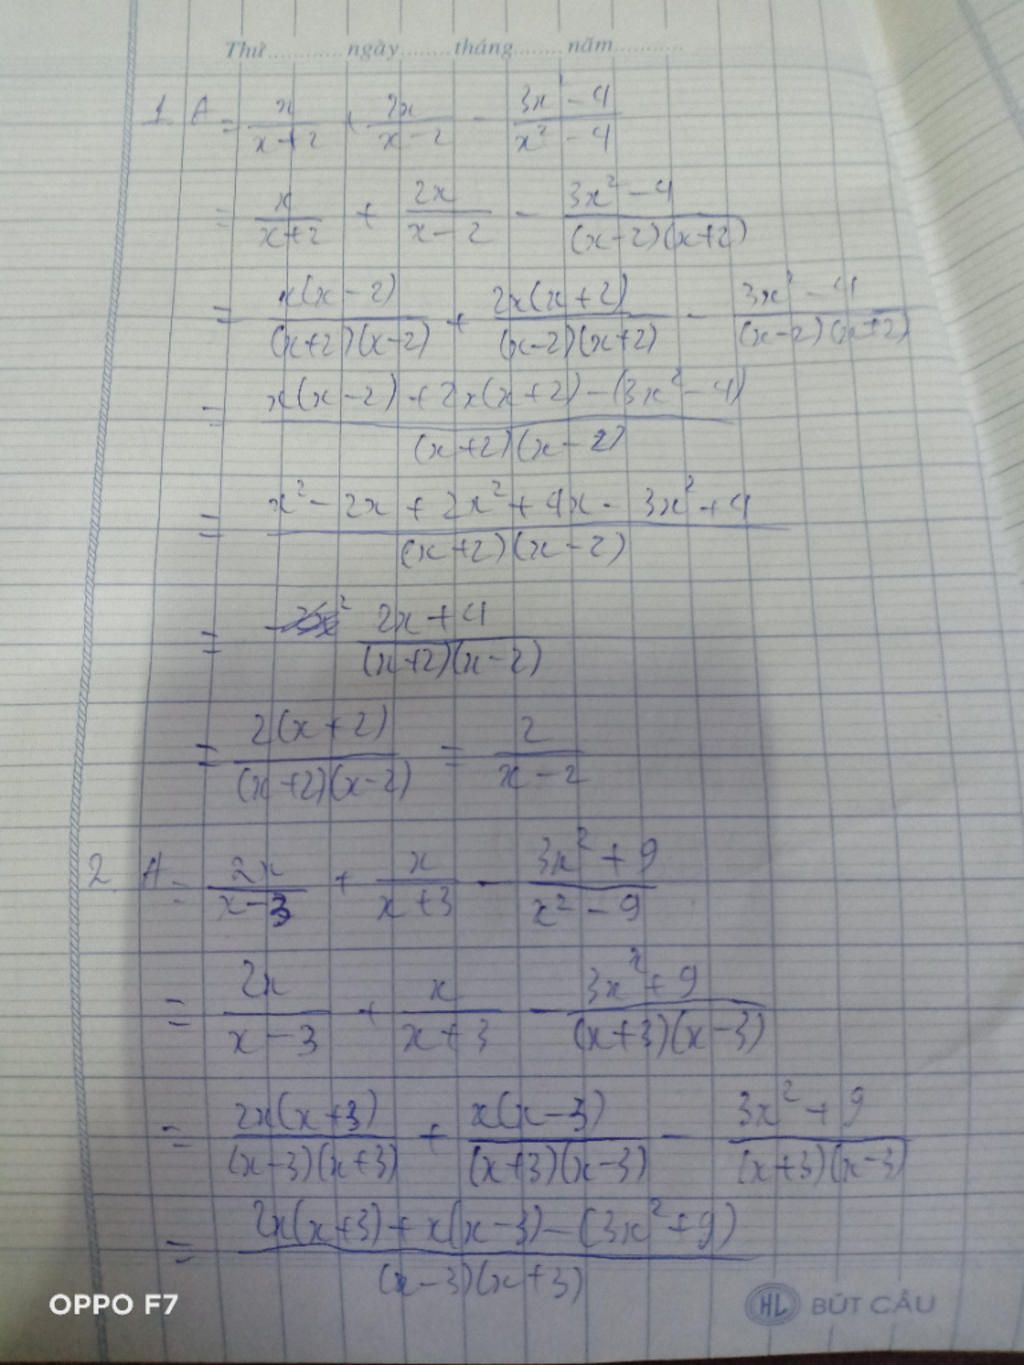 Thứ............ngày........tháng........năm............
1. A = x/(x+2) + 2x/(x-2) - (3x² - 4)/(x² - 4)
= x/(x+2) + 2x/(x-2) - (3x² - 4)/((x-2)(x+2))
= x(x-2)/((x+2)(x-2)) + 2x(x+2)/((x-2)(x+2)) - (3x² - 4)/((x-2)(x+2))
= (x(x-2) + 2x(x+2) - (3x² - 4))/((x+2)(x-2))
= (x² - 2x + 2x² + 4x - 3x² + 4)/((x+2)(x-2))
= (2x + 4)/((x+2)(x-2))
= 2(x+2)/((x+2)(x-2)) = 2/(x-2)
2. A = 2x/(x-3) + x/(x+3) - (3x² + 9)/(x² - 9)
= 2x/(x-3) + x/(x+3) - (3x² + 9)/((x+3)(x-3))
= 2x(x+3)/((x-3)(x+3)) + x(x-3)/((x+3)(x-3)) - (3x² + 9)/((x+3)(x-3))
= (2x(x+3) + x(x-3) - (3x² + 9))/((x-3)(x+3))
OPPO F7
HL BÚT CÂU